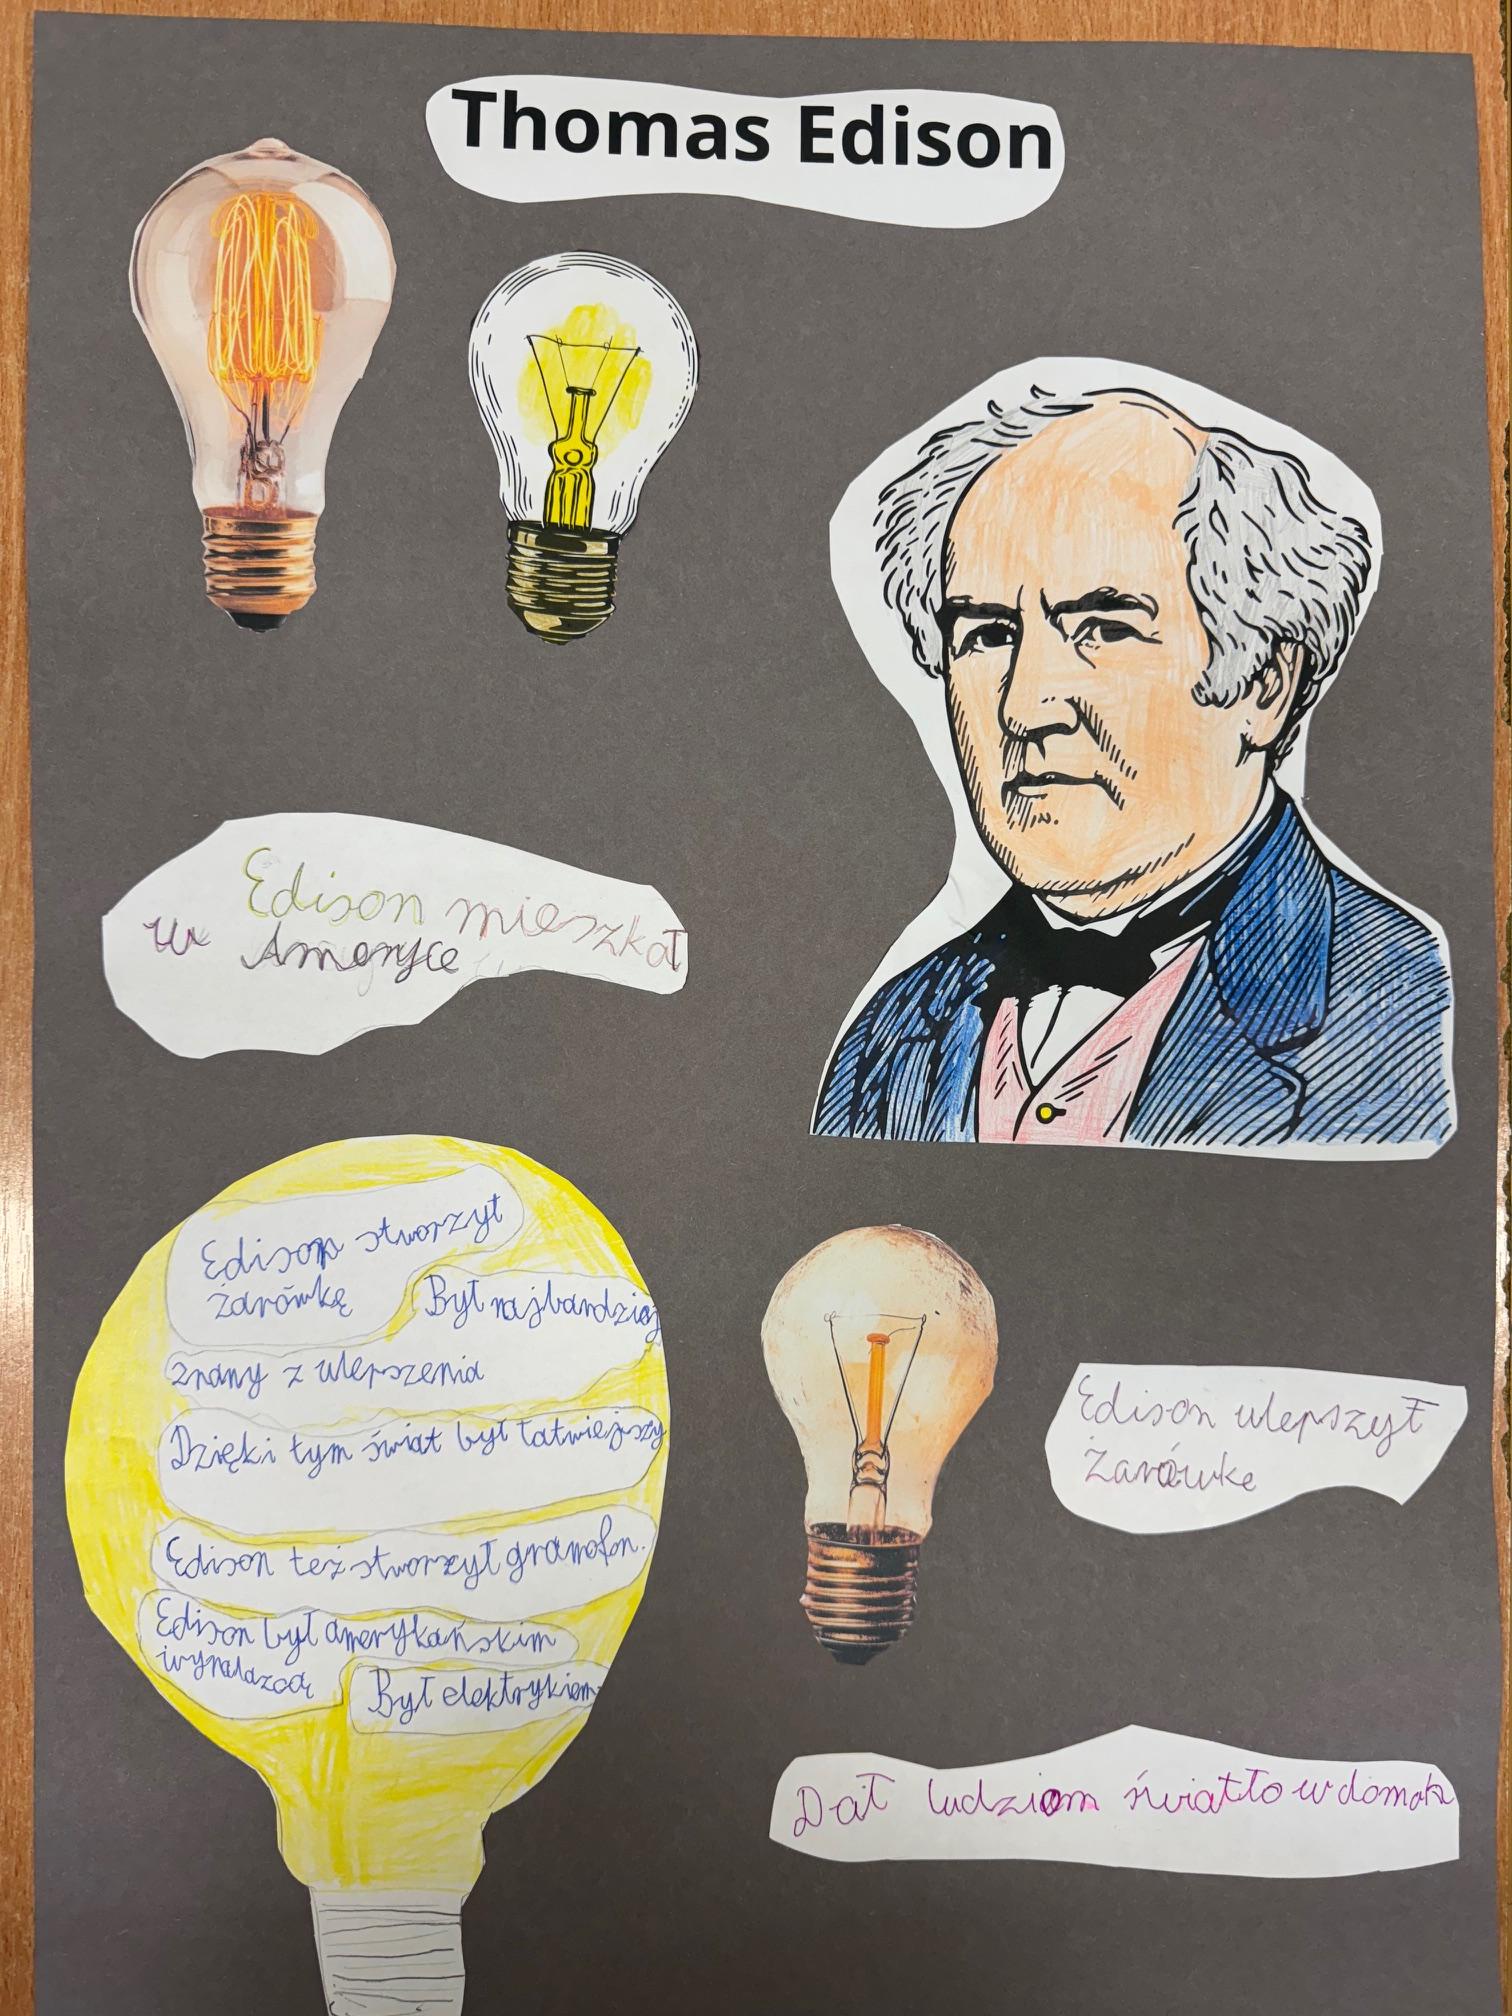 Thomas Edison
Edison mieszkał
w Ameryce
Edison stworzył
żarówkę
Był najbardziej
znany z ulepszenia
Dzięki tym świat był łatwiejszy
Edison też stworzył gramofon.
Edison był amerykańskim
wynalazcą
Był elektrykiem
Edison ulepszył
Żarówke
Dał ludziom światło w domah